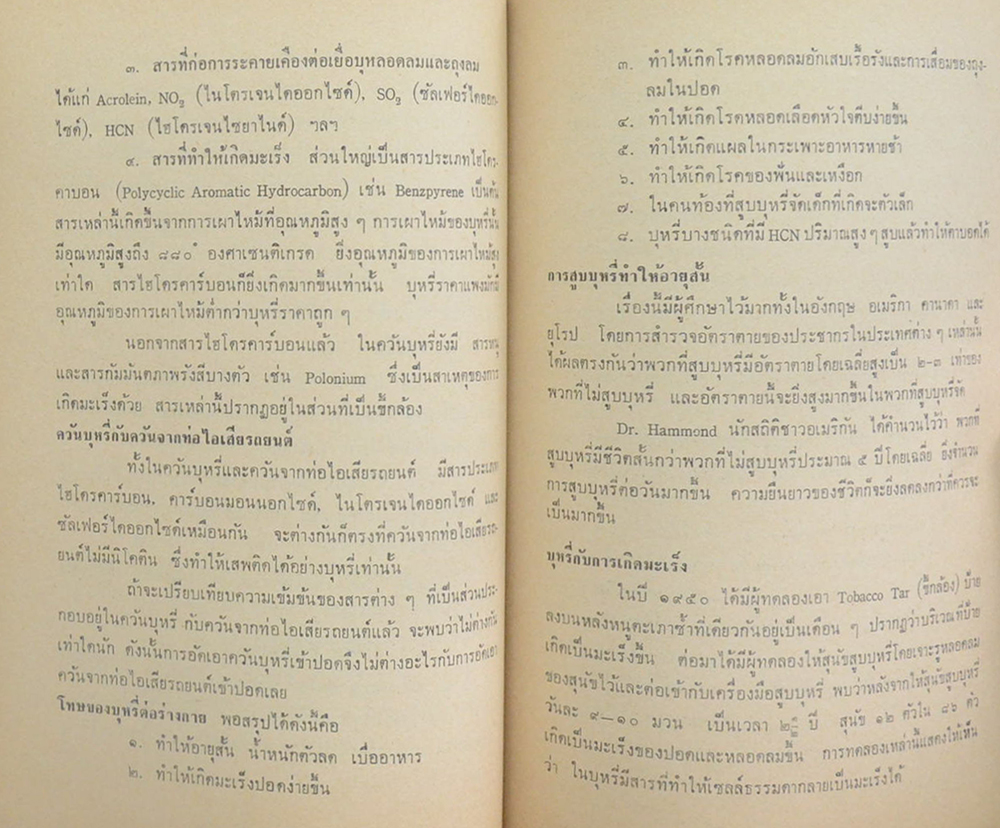 ๓. สารที่ก่อการระคายเคืองต่อเยื่อบุหลอดลมและถุงลม
ได้แก่ Acrolein, NO₂ (ไนโตรเจนไดออกไซด์), SO₂ (ซัลเฟอร์ไดออก-
ไซด์), HCN (ไฮโดรเจนไซยาไนด์) ฯลฯ
๔. สารที่ทำให้เกิดมะเร็ง ส่วนใหญ่เป็นสารประเภทไฮโดร-
คาบอน (Polycyclic Aromatic Hydrocarbon) เช่น Benzpyrene เป็นต้น
สารเหล่านี้เกิดขึ้นจากการเผาไหม้ที่อุณหภูมิสูง ๆ การเผาไหม้ของบุหรี่นั้น
มีอุณหภูมิสูงถึง ๘๘๐° องศาเซนติเกรด ยิ่งอุณหภูมิของการเผาไหม้สูง
เท่าใด สารไฮโดรคาร์บอนก็ยิ่งเกิดมากขึ้นเท่านั้น บุหรี่ราคาแพงมักมี
อุณหภูมิของการเผาไหม้ต่ำกว่าบุหรี่ราคาถูก ๆ
นอกจากสารไฮโดรคาร์บอนแล้ว ในควันบุหรี่ยังมี สารหนู
และสารกัมมันตภาพรังสีบางตัว เช่น Polonium ซึ่งเป็นสาเหตุของการ
เกิดมะเร็งด้วย สารเหล่านี้ปรากฏอยู่ในส่วนที่เป็นขี้กล้อง
ควันบุหรี่กับควันจากท่อไอเสียรถยนต์
ทั้งในควันบุหรี่และควันจากท่อไอเสียรถยนต์ มีสารประเภท
ไฮโดรคาร์บอน, คาร์บอนมอนนอกไซด์, ไนโตรเจนไดออกไซด์ และ
ซัลเฟอร์ไดออกไซด์เหมือนกัน จะต่างกันก็ตรงที่ควันจากท่อไอเสียรถ-
ยนต์ไม่มีนิโคติน ซึ่งทำให้เสพติดได้อย่างบุหรี่เท่านั้น
ถ้าจะเปรียบเทียบความเข้มข้นของสารต่าง ๆ ที่เป็นส่วนประ-
กอบอยู่ในควันบุหรี่ กับควันจากท่อไอเสียรถยนต์แล้ว จะพบว่าไม่ต่างกัน
เท่าใดนัก ดังนั้นการอัดเอาควันบุหรี่เข้าปอดจึงไม่ต่างอะไรกับการอัดเอา
ควันจากท่อไอเสียรถยนต์เข้าปอดเลย
โทษของบุหรี่ต่อร่างกาย พอสรุปได้ดังนี้คือ
๑. ทำให้อายุสั้น น้ำหนักตัวลด เบื่ออาหาร
๒. ทำให้เกิดมะเร็งปอดง่ายขึ้น
๓. ทำให้เกิดโรคหลอดลมอักเสบเรื้อรังและการเสื่อมของถุง-
ลมในปอด
๔. ทำให้เกิดโรคหลอดเลือดหัวใจตีบง่ายขึ้น
๕. ทำให้เกิดแผลในกระเพาะอาหารหายช้า
๖. ทำให้เกิดโรคของฟันและเหงือก
๗. ในคนท้องที่สูบบุหรี่จัดเด็กที่เกิดจะตัวเล็ก
๘. บุหรี่บางชนิดที่มี HCN ปริมาณสูง ๆ สูบแล้วทำให้ตาบอดได้
การสูบบุหรี่ทำให้อายุสั้น
เรื่องนี้มีผู้ศึกษาไว้มากทั้งในอังกฤษ อเมริกา คานาดา และ
ยุโรป โดยการสำรวจอัตราตายของประชากรในประเทศต่าง ๆ เหล่านั้น
ได้ผลตรงกันว่าพวกที่สูบบุหรี่มีอัตราตายโดยเฉลี่ยสูงเป็น ๒-๓ เท่าของ
พวกที่ไม่สูบบุหรี่ และอัตราตายนี้จะยิ่งสูงมากขึ้นในพวกที่สูบบุหรี่จัด
Dr. Hammond นักสถิติชาวอเมริกัน ได้คำนวนไว้ว่า พวกที่
สูบบุหรี่มีชีวิตสั้นกว่าพวกที่ไม่สูบบุหรี่ประมาณ ๕ ปีโดยเฉลี่ย ยิ่งจำนวน
การสูบบุหรี่ต่อวันมากขึ้น ความยืนยาวของชีวิตก็จะยิ่งลดลงกว่าที่ควรจะ
เป็นมากขึ้น
บุหรี่กับการเกิดมะเร็ง
ในปี ๑๙๕๐ ได้มีผู้ทดลองเอา Tobacco Tar (ขี้กล้อง) ป้าย
ลงบนหลังหนูตะเภาซ้ำที่เดียวกันอยู่เป็นเดือน ๆ ปรากฏว่าบริเวณที่ป้าย
เกิดเป็นมะเร็งขึ้น ต่อมาได้มีผู้ทดลองให้สุนัขสูบบุหรี่โดยเจาะรูหลอดลม
ของสุนัขไว้และต่อเข้ากับเครื่องมือสูบบุหรี่ พบว่าหลังจากให้สุนัขสูบบุหรี่
วันละ ๙-๑๐ มวน เป็นเวลา ปี สุนัข ๑๒ ตัวใน ๘๖ ตัว
เกิดเป็นมะเร็งของปอดและหลอดลมขึ้น การทดลองเหล่านี้แสดงให้เห็น
ว่า ในบุหรี่มีสารที่ทำให้เซลล์ธรรมดากลายเป็นมะเร็งได้